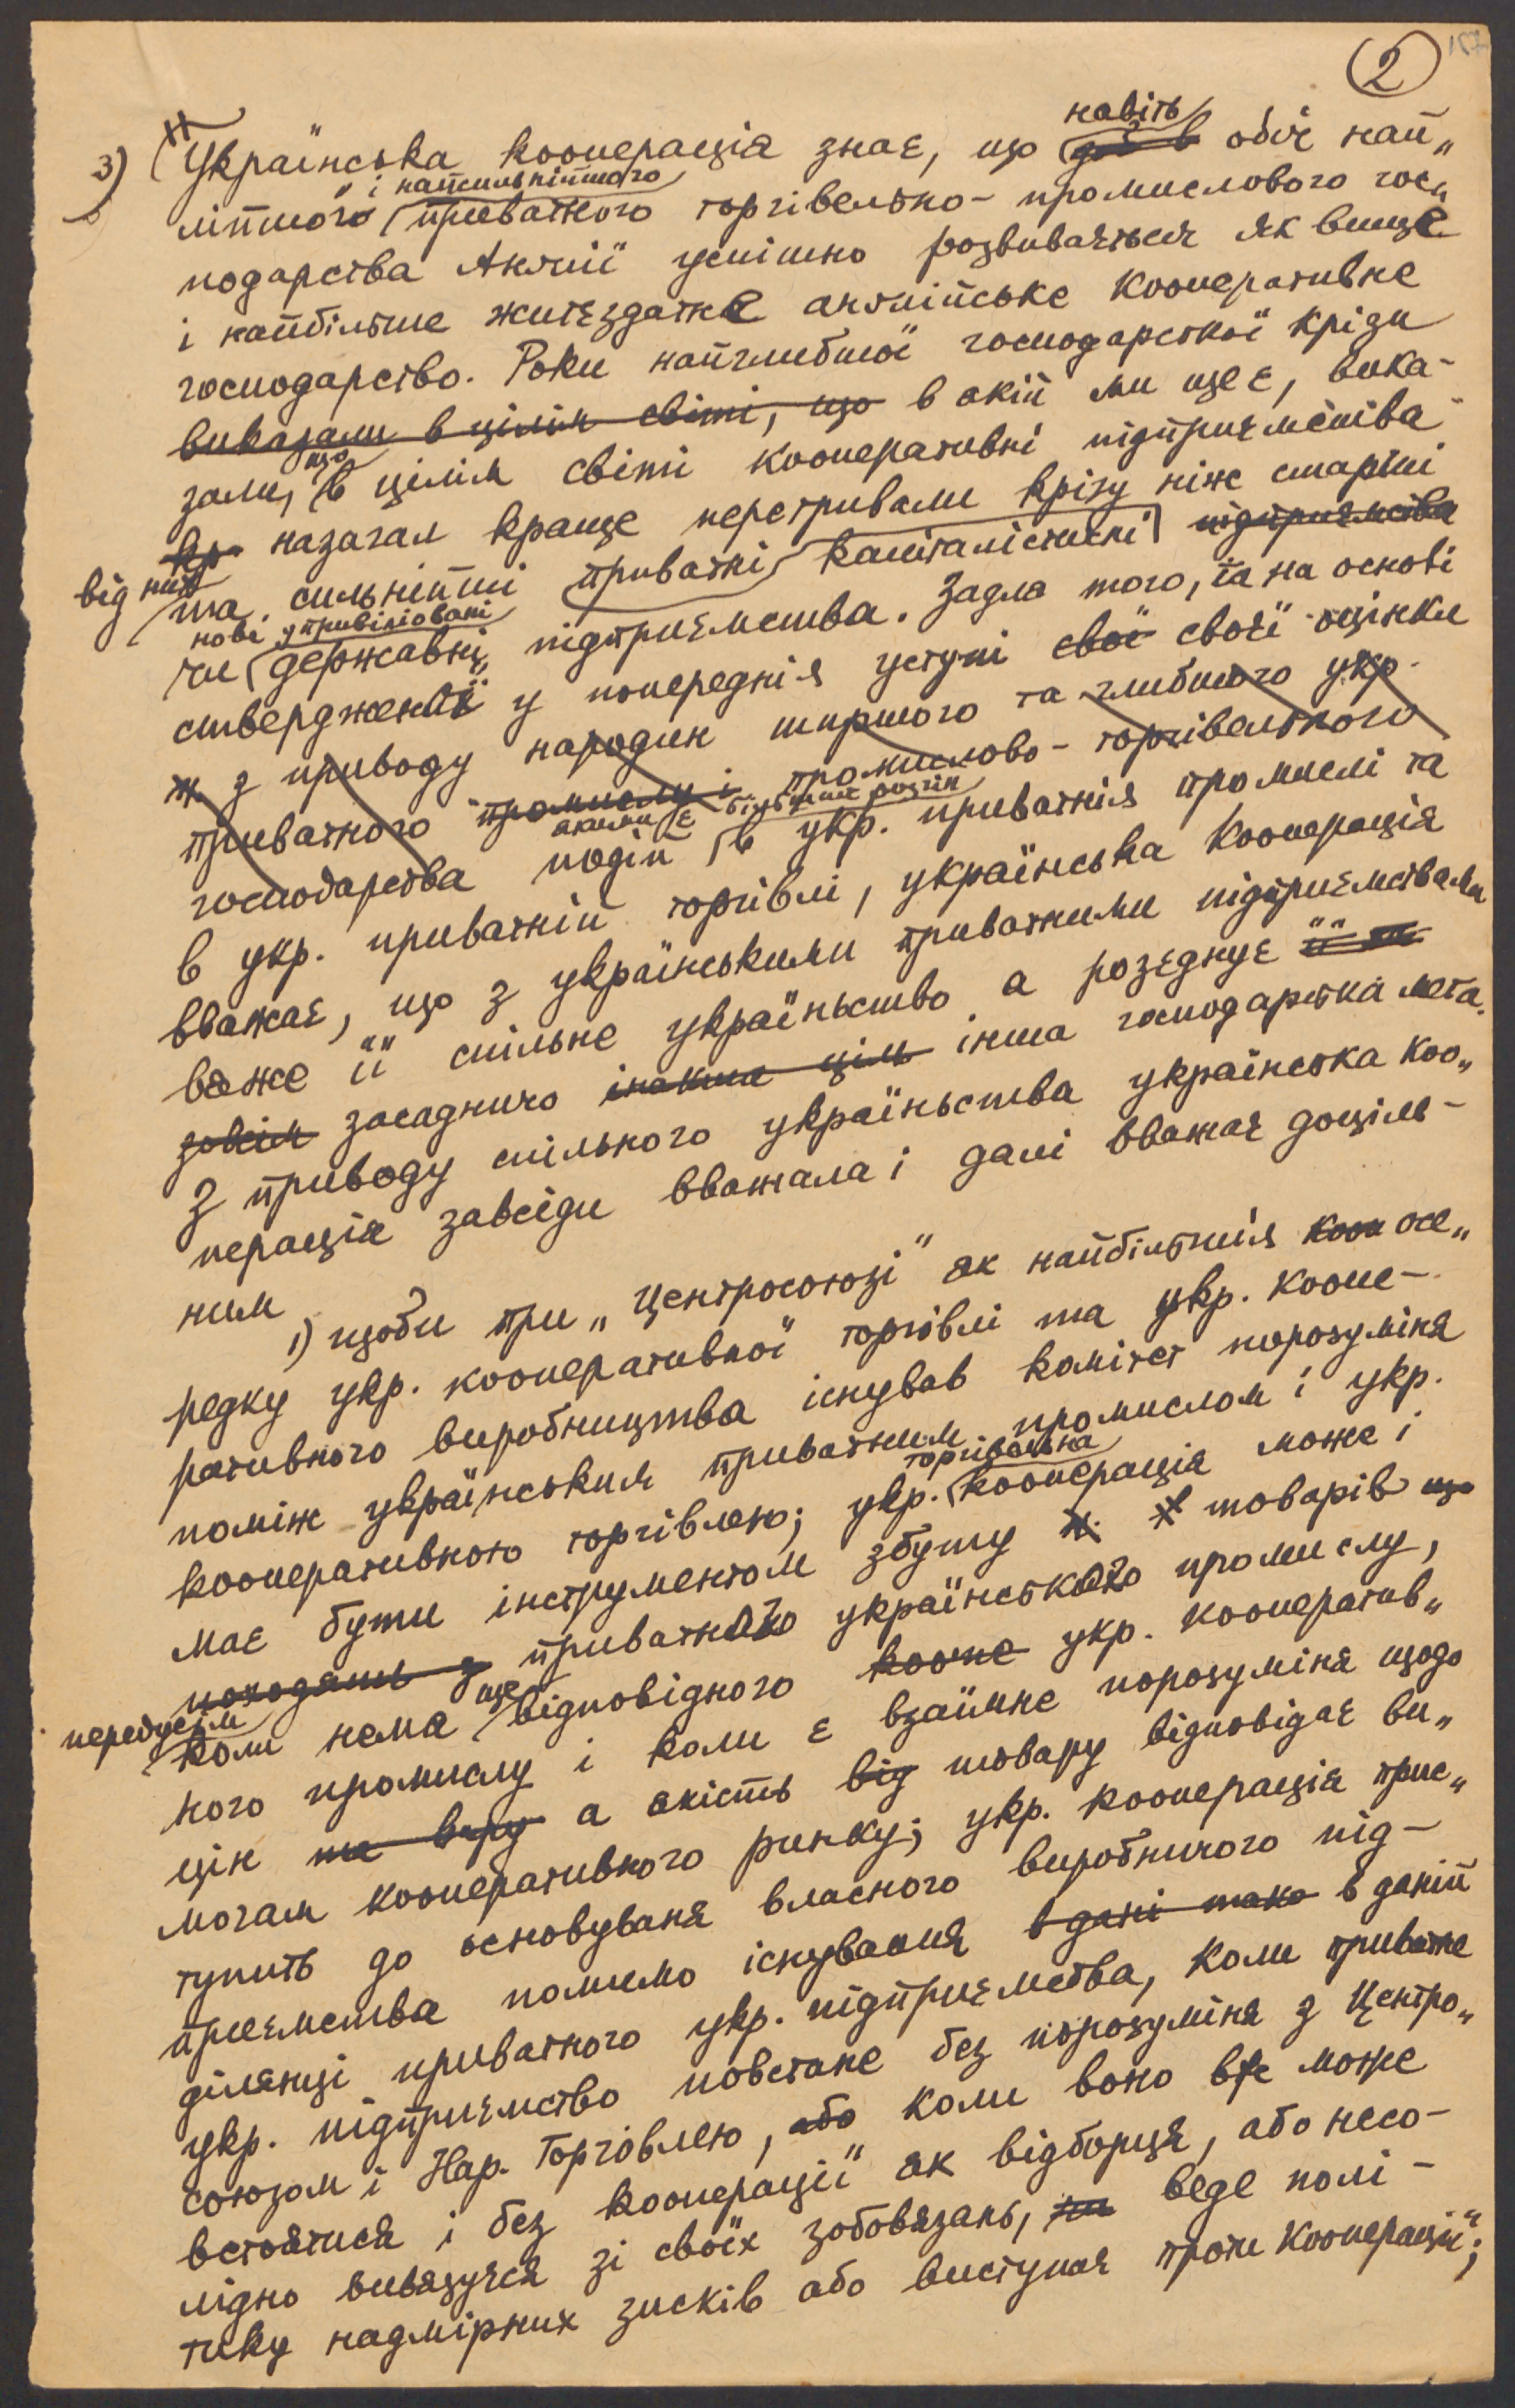 2
157
навіть
3) Українська кооперація знає, що обіч най„
і найсильнійшого
ліпшого приватного торгівельно-промислового гос„
подарства Англії успішно розвивається як вище
і найбільше житєздатне англійське кооперативне
господарство. Роки найглибшої господарської крізи
виказали в цілім світі, що в якій ми ще є, вика-
що
зали, в цілім світі кооперативні підприємства
кр назагал краще перетривали крізу ніж старші
від них
та сильнійші приватні капіталістичні підприємства
нові упривілійовані
чи державні підприємства. Задля того, та на основі
ствердженої у попереднім уступі свої своєї оцінки
ж з приводу народин ширшого та глибшого укр.
приватного промислу і промислово-торгівельного
якими є більший розгін
господарства подій в укр. приватнім промислі та
в укр. приватній торгівлі, українська кооперація
вважає, що з українськими приватними підприємствами
вяже її спільне українство а розєднує її
зовсім засадничо інакша ціль інша господарська мета.
З приводу спільного українства українська коо„
перація завсіди вважала і далі вважає доціль-
ним
1) щоби при „Центросоюзі" як найбільшім кооп осе„
редку укр. кооперативної торгівлі та укр. коопе-
ративного виробництва існував комітет порозуміня
поміж українським приватним промислом і укр.
торгівельна
кооперативною торгівлею; укр. кооперація може і
має бути інструментом збуту товарів що
походять з приватного українського промислу,
передусім
ще
коли нема відповідного коопе укр. кооператив„
ного промислу і коли є взаїмне порозуміня щодо
цін та вару а якість від товару відповідає ви„
могам кооперативного ринку; укр. кооперація прис„
тупить до основуваня власного виробничого під-
приємства помимо існування в дані тако в даній
ділянці приватного укр. підприємства, коли приватне
укр. підприємство повстане без порозуміня з Центро„
союзом і Нар. Торговлею, або коли воно вже може
встоятися і без кооперації як відборця, або несо-
лідно вивязуєся зі своїх зобовязань, веде полі-
тику надмірних зисків або виступає проти кооперації;